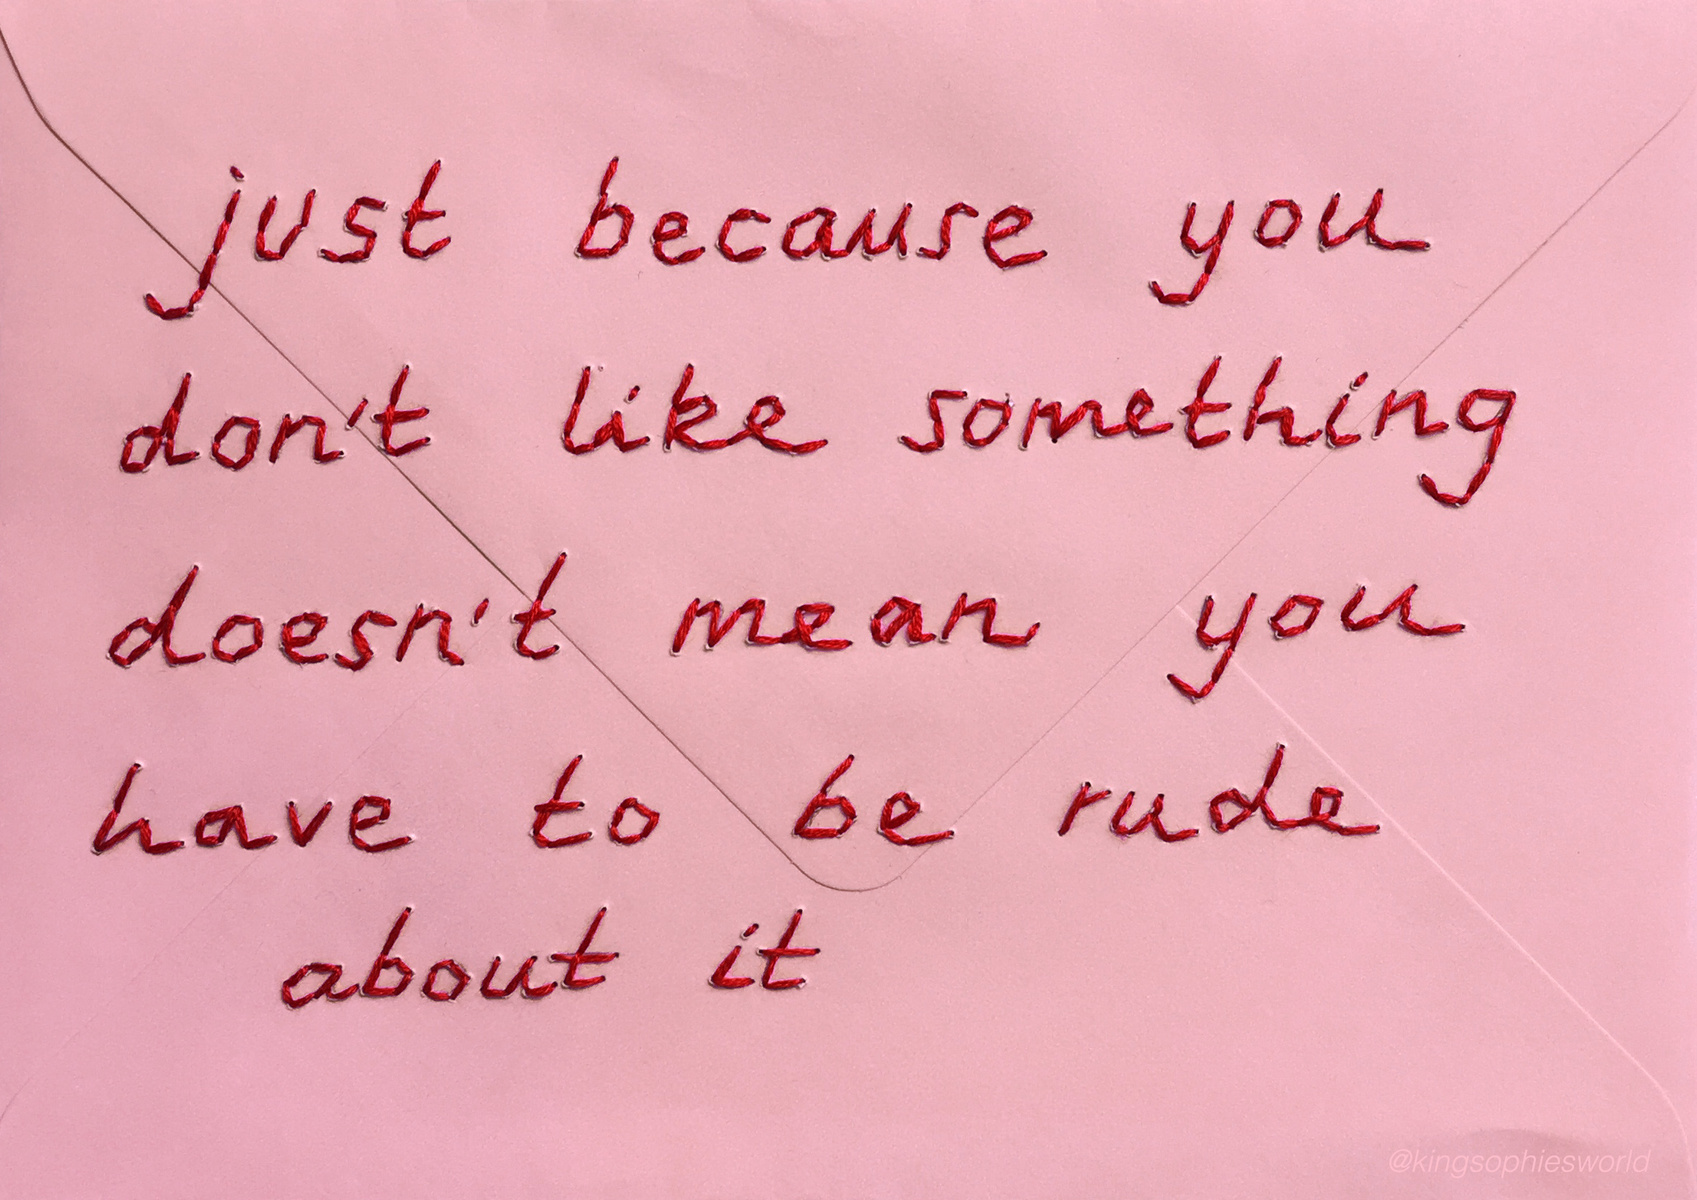 just because you
don't like something
doesn't mean you
have to be rude
about it
@kingsophiesworld